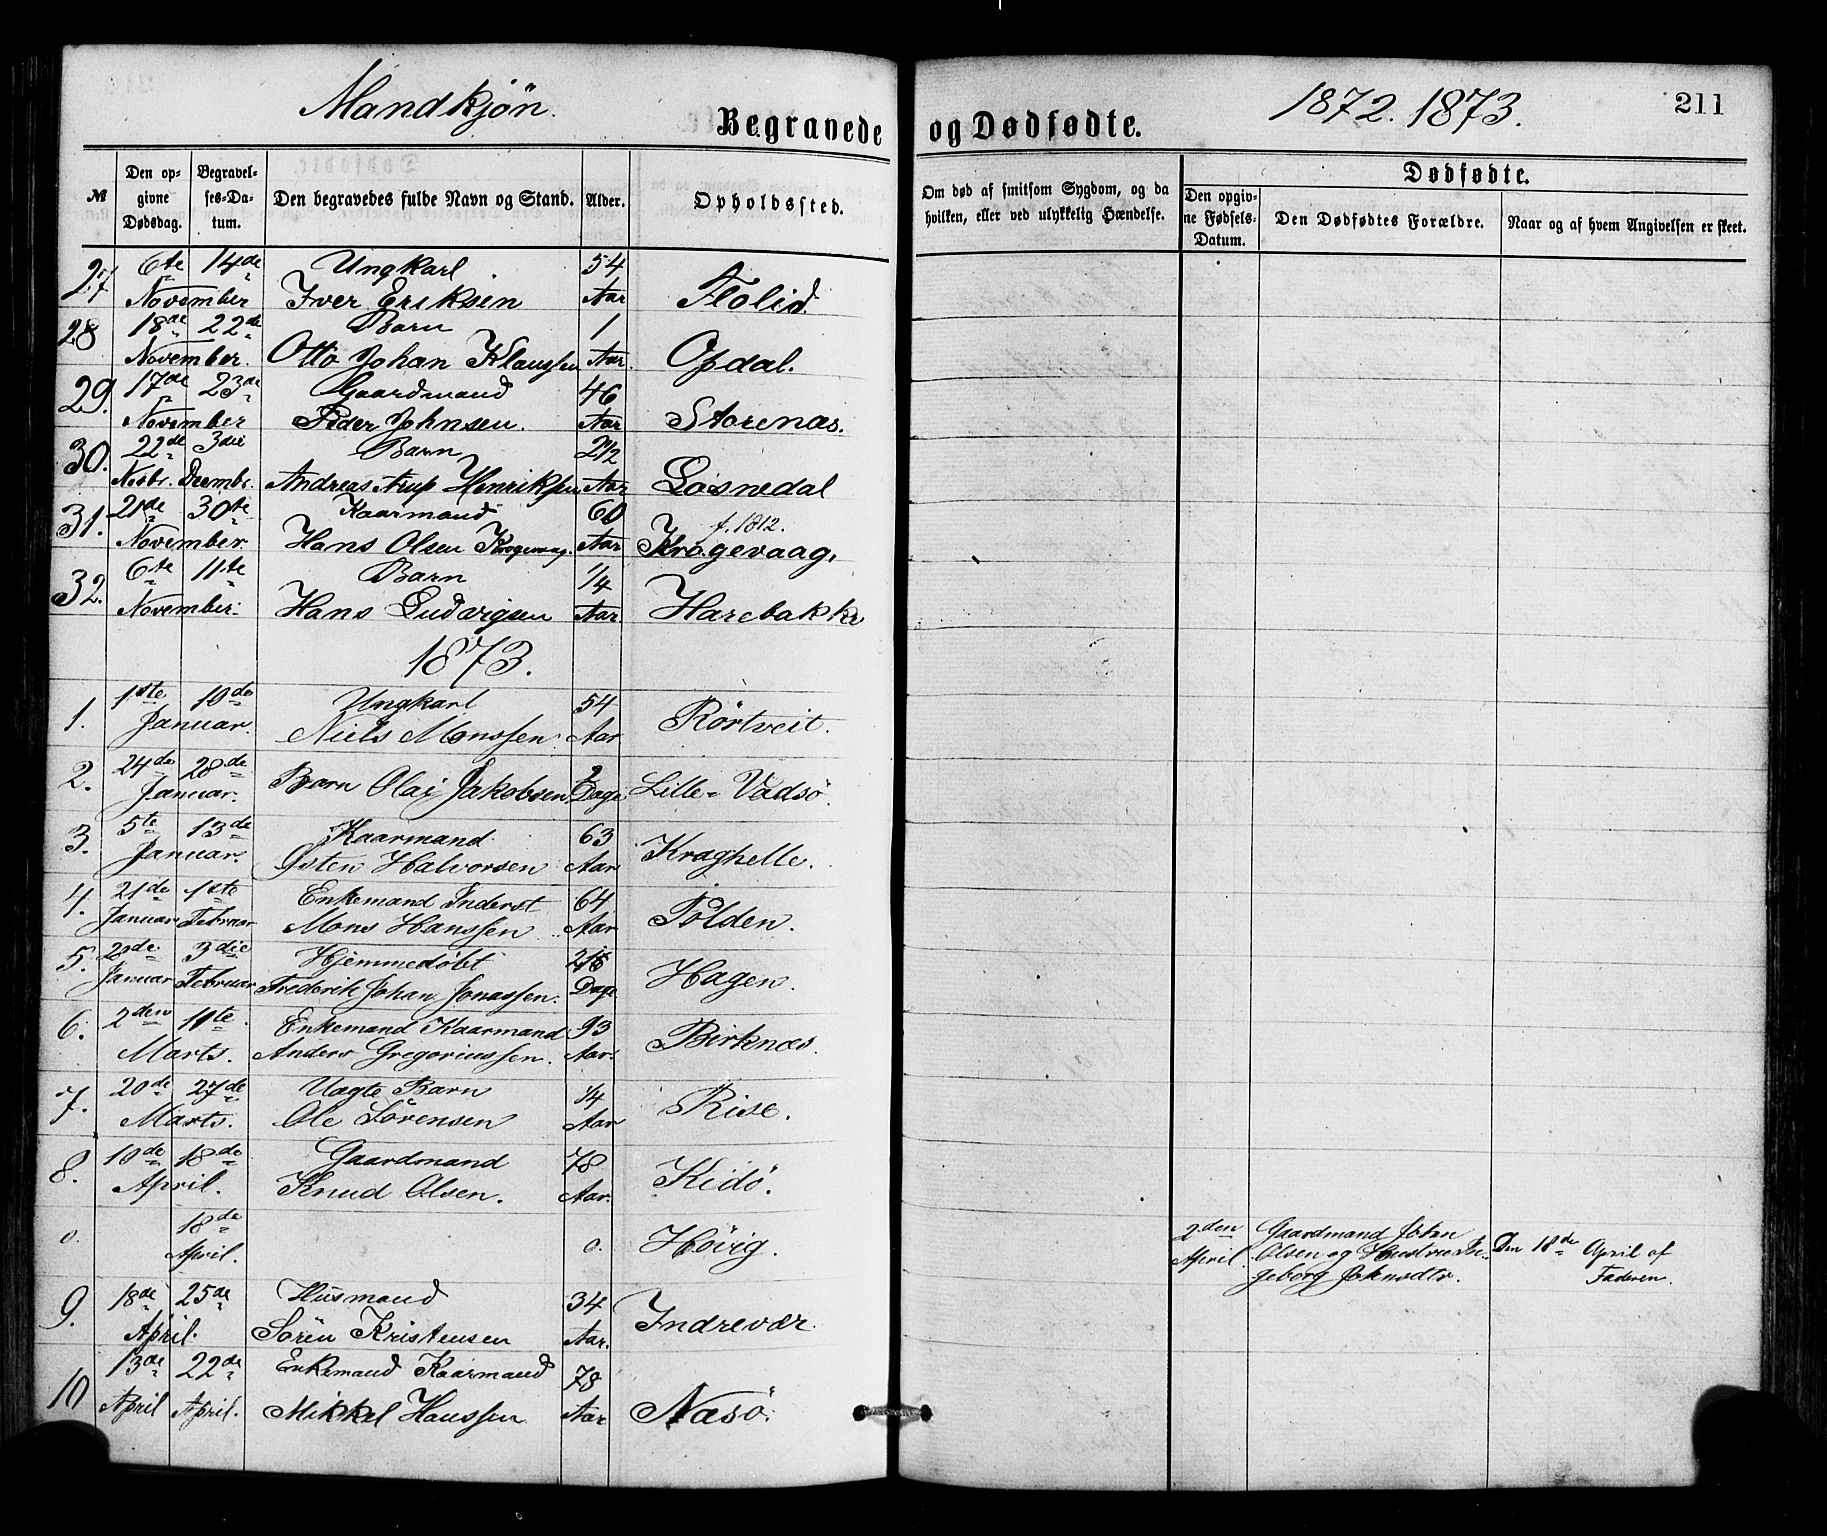 Mandkjøn.
Begravede og Dødfødte.
1872. 1873.
211
№
Den op-
givne
Dødsdag.
Begravel-
ses-Da-
tum.
Den begravedes fulde Navn og Stand.
Alder.
Opholdssted.
Om død af smitsom Sygdom, og da
hvilken, eller ved ulykkelig Hændelse.
Dødfødte.
Den opgiv-
ne Fødsels-
Datum.
Den Dødfødtes Forældre.
Naar og af hvem Angivelsen er skeet.
6te 14de Ungkarl 54
27 November Iver Eriksen Aar Flolid.
18de 22de Barn 1
28 November. Otto Johan Klaussen Aar. Opdal.
17de 23de Gaardmand 46
29. November Peder Johnsen. Aar Storenæs.
22de 3die Barn 2 1/2
30. Novbr. Decmbr. Andreas Arup Henriksen Aar Losnedal
21de 30te Kaarmand 60 f. 1812.
31. November. Hans Olsen Krogevaag. Aar Krogevaag,
6te 11te Barn 1/4
32. November. Hans Ludvigsen Aar Harebakke
1873.
1ste 10de Ungkarl 54
1. Januar. Niels Monssen Aar Rörtveit.
24de 28de
2. Januar. Barn Olai Jakobsen 2 Dage Lille-Vadsö.
5te 13de Kaarmand 63
3. Januar. Østen Halvorsen Aar Kraghelle.
21de 1ste Enkemand Inderst 64
4. Januar Februar Mons Hanssen Aar Tolden.
28de 3die Hjemmedöbt
5. Januar Februar Frederik Johan Jonassen. Dage Hagen.
2den 11te Enkemand Kaarmand 93
6. Marts. Anders Gregoriussen. Aar. Birknæs.
20de 27de Uægte Barn 1/4
7. Marts. Ole Sörensen Aar Rise.
10de 18de Gaardmand 78
8. April. Knud Olsen. Aar. Kidö.
o. 18de April. o. Hövig.
2den April. Gaardmand Johan
Olsen og Hustru In-
geborg Johnsdtr.
Den 18de April af
Faderen.
18de 25de Husmand 34
9. April. Sören Kristensen Aar. Indrevær.
13de 22de Enkemand Kaarmand 78
10 April April. Mikkel Hanssen Aar Næsö.